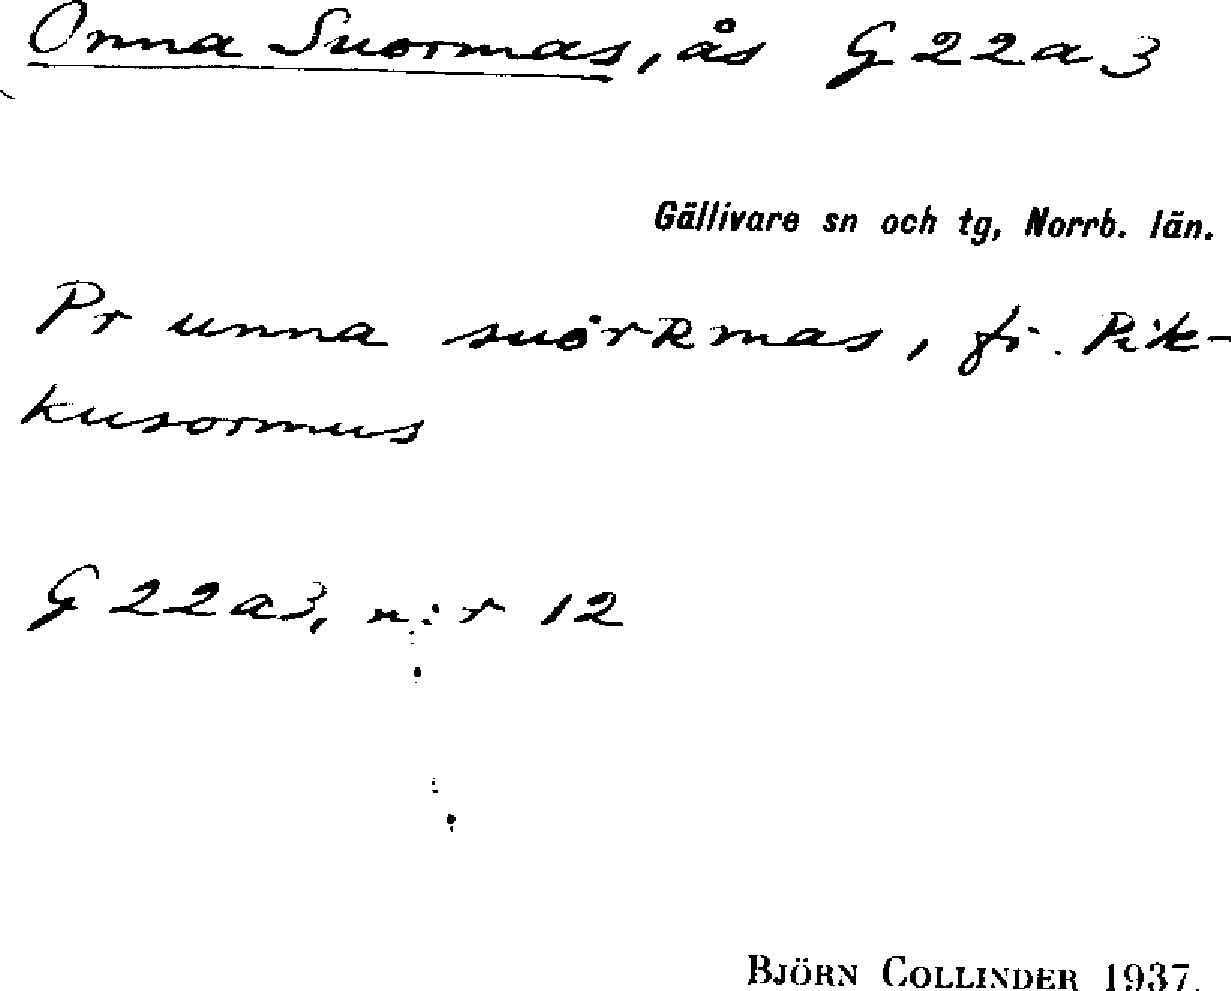 Onna Suormas, ås G 22 a 3
Gällivare sn och tg, Norrb. län.
Pr unna suörRmas, fi. Pik-
kusormus
G 22 a 3, n:r 12
BJÖRN COLLINDER 1937.